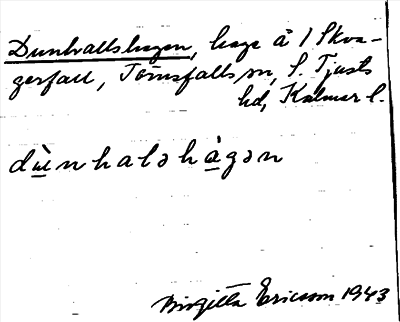 Dunhallshagen, hage å 1 Skva-
gerfall, Törnsfalls sn, S. Tjusts
hd, Kalmar l.
dùnhaləhàgən
Birgitta Ericson 1943